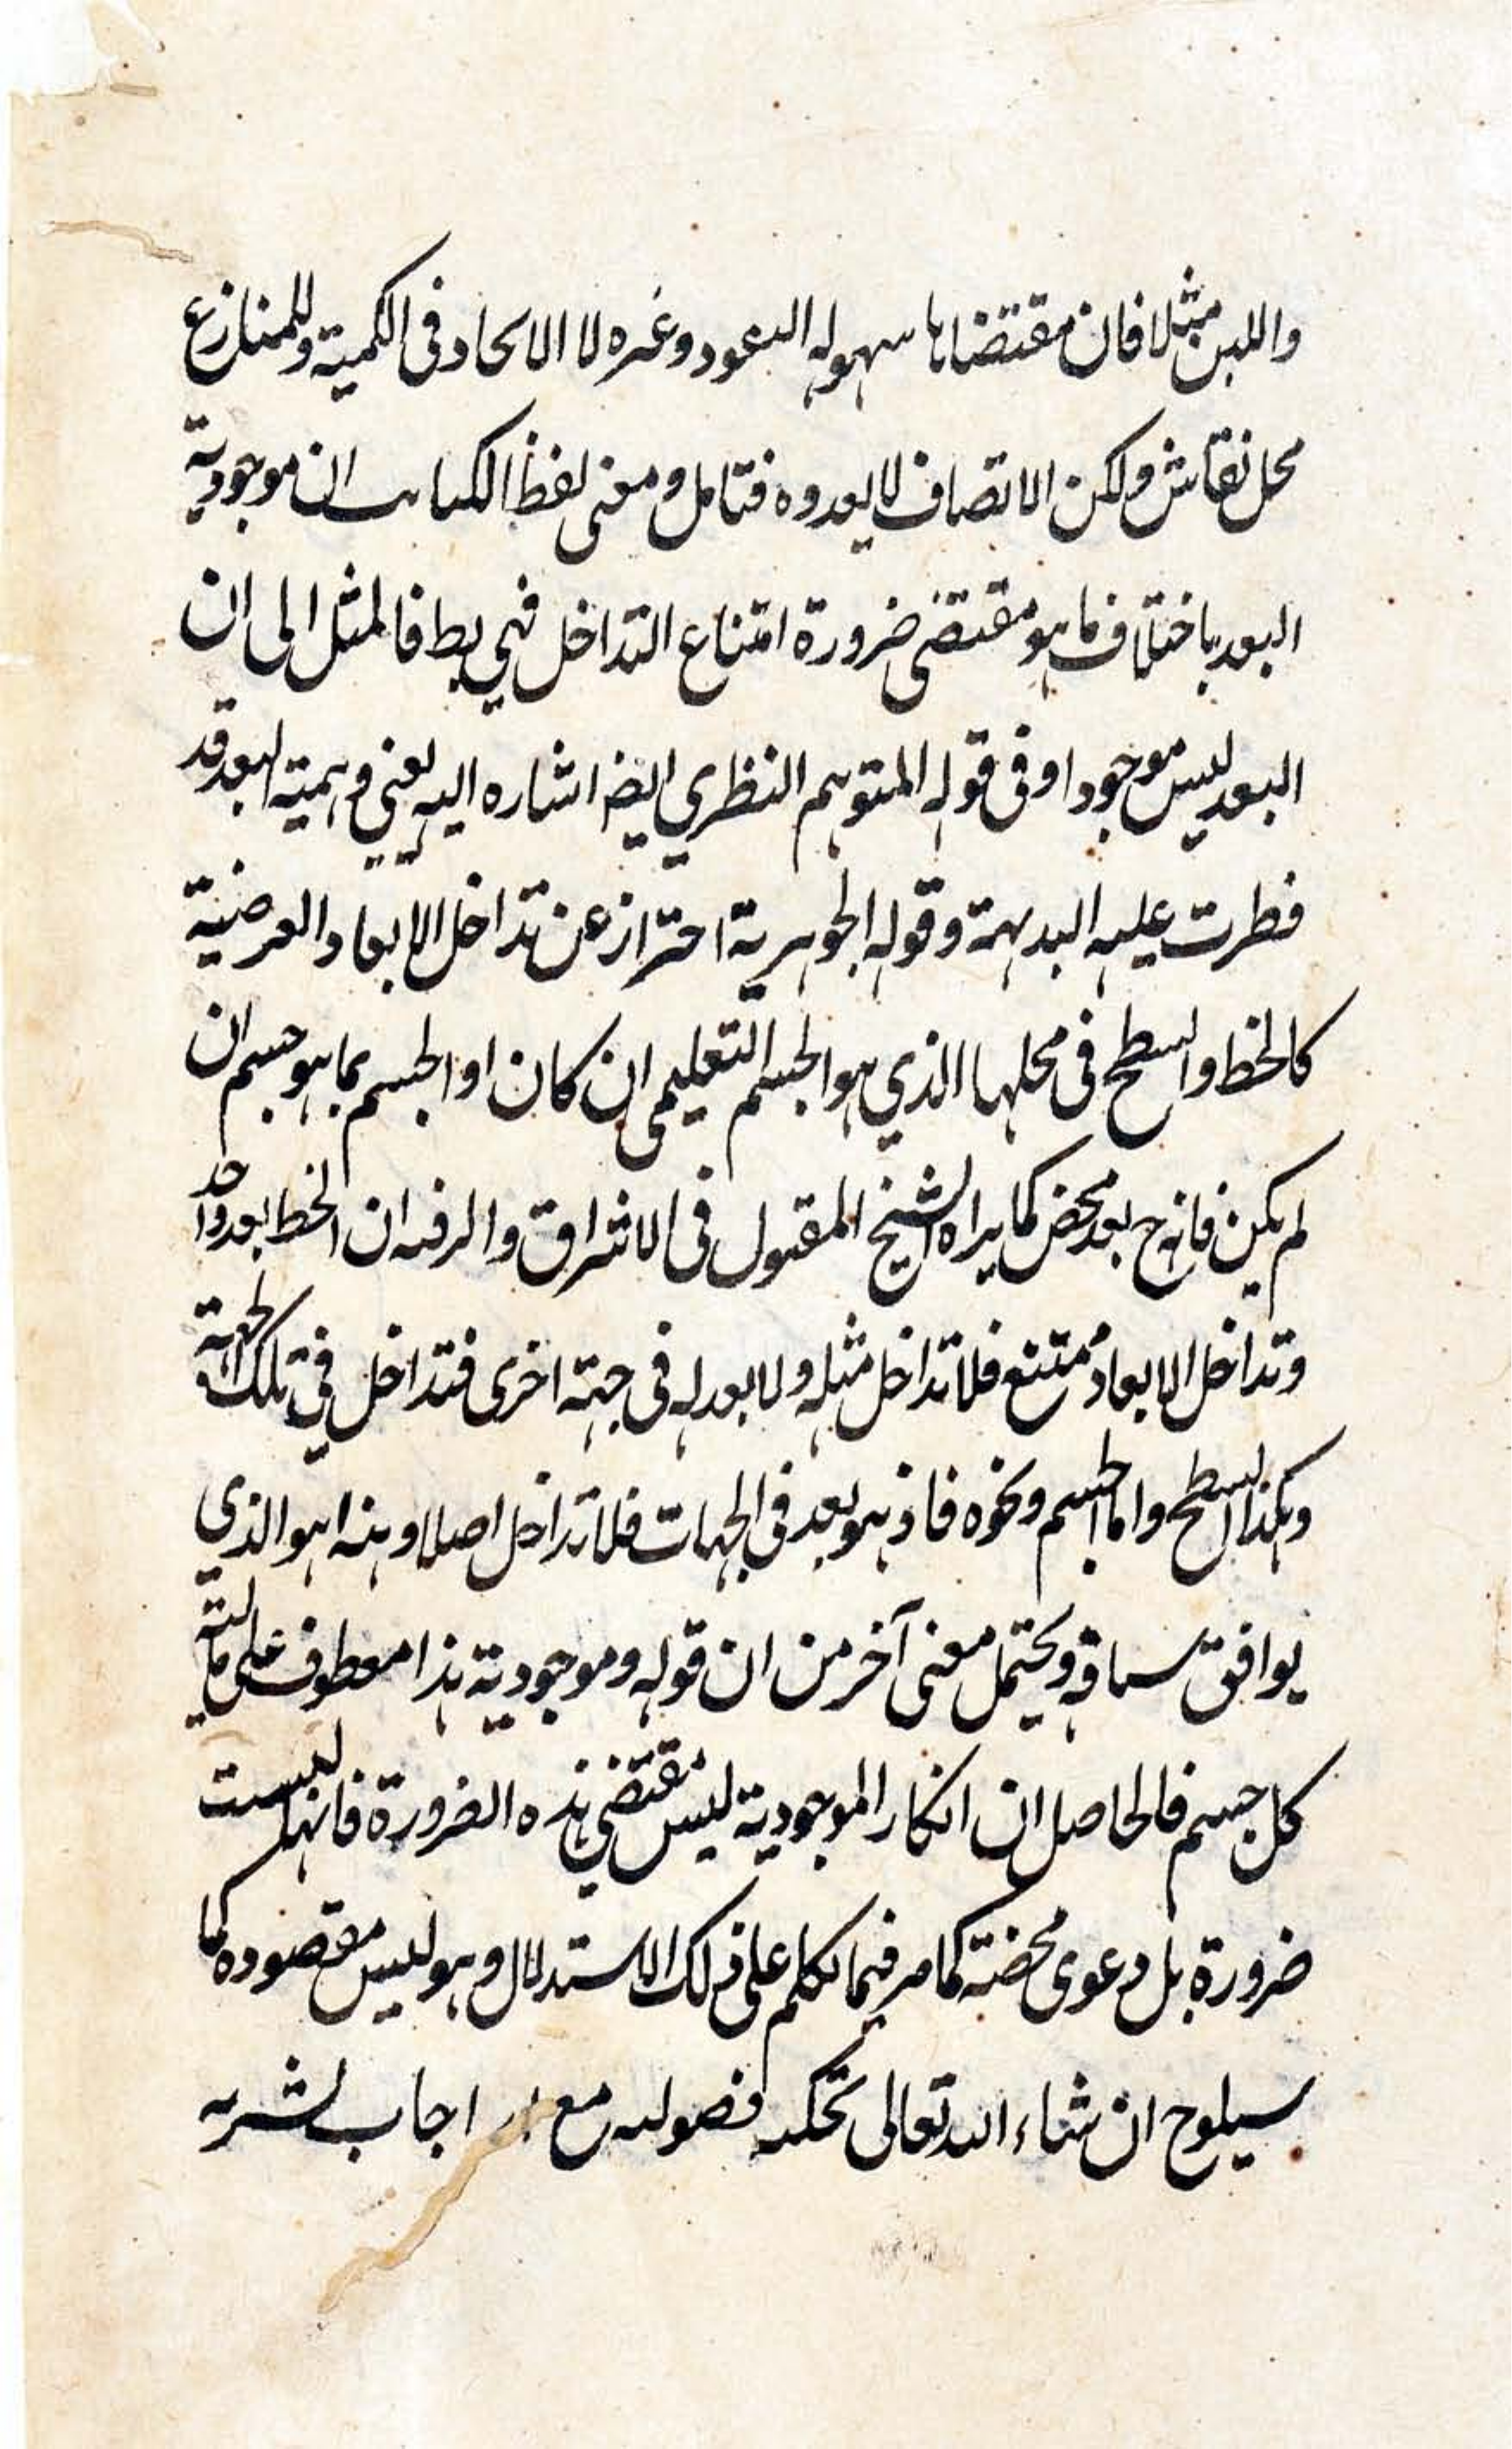 واللين مثلا فان مقتضاها سهولة النفوذ وغيره لا الاتحاد فى الكمية وللمنازع
محل نقاش ولكن الاتصاف لا يعدوه فتامل ومعنى لفظ الكتاب ان موجودية
البعد باختلاف ما هو مقتضى ضرورة امتناع التداخل فهي بط فالمثل الى ان
البعد ليس موجودا وفى قوله المتوهم النظري ايضا اشاره اليه يعني وهمية البعد قد
فطرت عليه البديهة وقوله الجوهرية احتراز عن تداخل الابعاد العرضية
كالخط والسطح فى محلها الذي هو الجسم التعليمى ان كان او الجسم بما هو جسم ان
لم يكن فانه ح بعد محض كما يراه الشيخ المقتول فى الاشراق والرفيه ان الخط بعد واحد
وتداخل الابعاد ممتنع فلا تداخل مثله ولا بعد له فى جهة اخرى فتداخل في تلك الجهة
وهكذا السطح واما الجسم ونحوه فاذ هو بعد فى الجهات فلا تداخل اصلا وهذا هو الذي
يوافق سياقه ويحتمل معنى آخر من ان قوله وموجودية هذا معطوف على مالية
كل جسم فالحاصل ان انكار الموجودية ليس مقتضي هذه الضرورة فانها ليست
ضرورة بل دعوى محضة كما مر فيما تكلم على ذلك الاستدلال وهو ليس مقصوده كما
سيلوح ان شاء الله تعالى مع اجاب